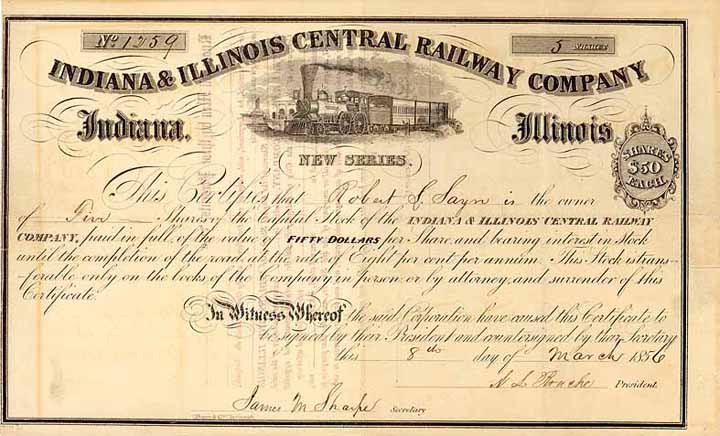 No 1259
5 SHARES
INDIANA & ILLINOIS CENTRAL RAILWAY COMPANY
Indiana.
Illinois
NEW SERIES.
SHARES
$50
EACH.
This Certifies that Robert S. Sayn is the owner
of Five Shares of the Capital Stock of the INDIANA & ILLINOIS CENTRAL RAILWAY
COMPANY, paid in full, of the value of FIFTY DOLLARS per Share, and bearing interest in Stock
until the completion of the road, at the rate of Eight per cent. per annum. This Stock is trans-
ferable only on the books of the Company in person or by attorney, and surender of this
Certificate.
In Witness Whereof the said Corporation have caused this Certificate to
be signed by their President and countersigned by their Secretary
this 8th day of March 1856
President.
James M Sharpe Secretary